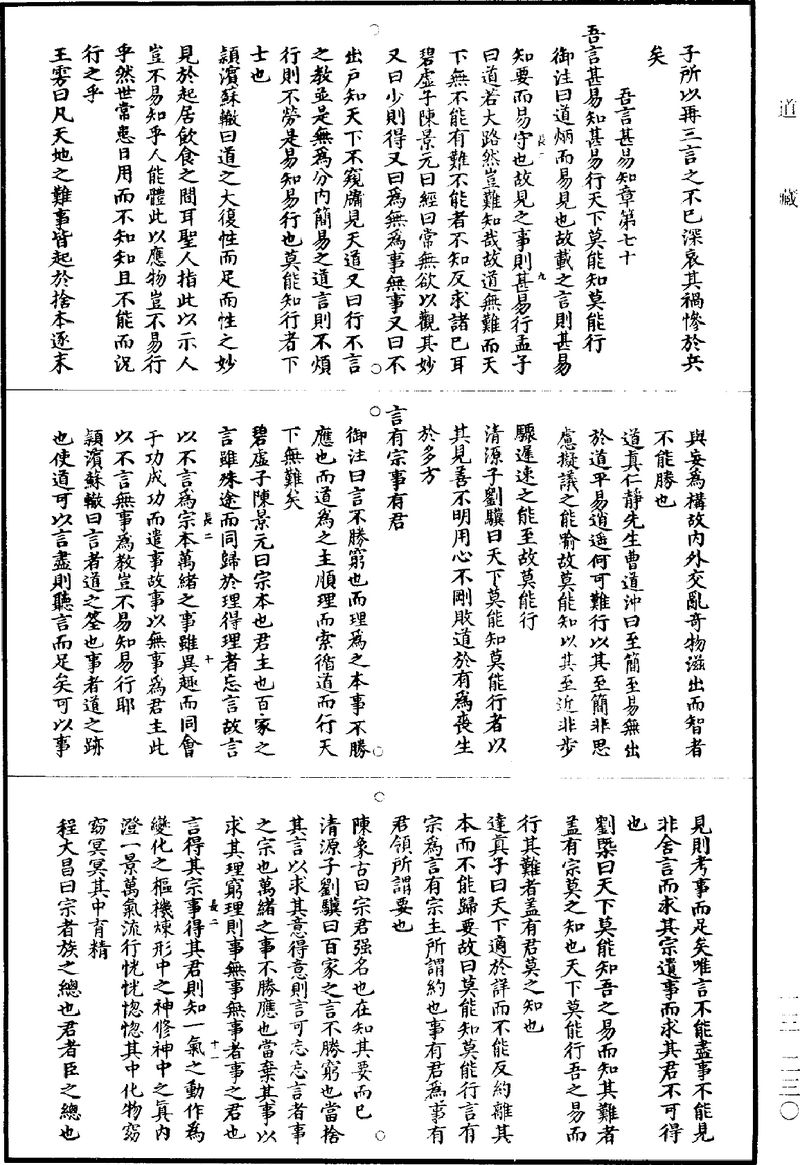 道藏
一三—二三〇
子所以再三言之不已深哀其禍慘於兵
矣
吾言甚易知章第七十
吾言甚易知甚易行天下莫能知莫能行
御注曰道炳而易見也故載之言則甚易
知要而易守也故見之事則甚易行孟子
長一
九
曰道若大路然豈難知哉故道無難而天
下無不能有難不能者不知反求諸己耳
碧虛子陳景元曰經曰常無欲以觀其妙
又曰少則得又曰為無為事無事又曰不
出戶知天下不窺牖見天道又曰行不言
之教並是無為分內簡易之道言則不煩
行則不勞是易知易行也莫能知行者下
士也
頴濱蘇轍曰道之大復性而足而性之妙
見於起居飲食之間耳聖人指此以示人
豈不易知乎人能體此以應物豈不易行
乎然世常患日用而不知知且不能而況
行之乎
王雱曰凡天地之難事皆起於捨本逐末
與妄為構故內外交亂奇物滋出而智者
不能勝也
道真仁靜先生曹道沖曰至簡至易無出
於道平易逍遙何可難行以其至簡非思
慮擬議之能喻故莫能知以其至近非步
驟遲速之能至故莫能行
清源子劉驥曰天下莫能知莫能行者以
其見善不明用心不剛敗道於有為喪生
於多方
言有宗事有君
御注曰言不勝窮也而理為之本事不勝
應也而道為之主順理而索循道而行天
下無難矣
碧虛子陳景元曰宗本也君主也百家之
言雖殊途而同歸於理得理者忘言故言
以不言為宗本萬緒之事雖異趣而同會
長二
十
于功成功而遣事故事以無事為君主此
以不言無事為教豈不易知易行耶
頴濱蘇轍曰言者道之筌也事者道之跡
也使道可以言盡則聽言而足矣可以事
見則考事而足矣唯言不能盡事不能見
非舍言而求其宗遺事而求其君不可得
也
劉槩曰天下莫能知吾之易而知其難者
蓋有宗莫之知也天下莫能行吾之易而
行其難者蓋有君莫之知也
達真子曰天下適於詳而不能反約離其
本而不能歸要故曰莫能知莫能行言有
宗為言有宗主所謂約也事有君為事有
君領所謂要也
陳象古曰宗君强名也在知其要而已
清源子劉驥曰百家之言不勝窮也當捨
其言以求其意得意則言可忘忘言者事
之宗也萬緒之事不勝應也當棄其事以
求其理窮理則事無事無事者事之君也
長二
十一
言得其宗事得其君則知一氣之動作為
變化之樞機煉形中之神修神中之真內
澄一景萬氣流行恍恍惚惚其中化物窈
窈冥冥其中育精
程大昌曰宗者族之總也君者臣之總也